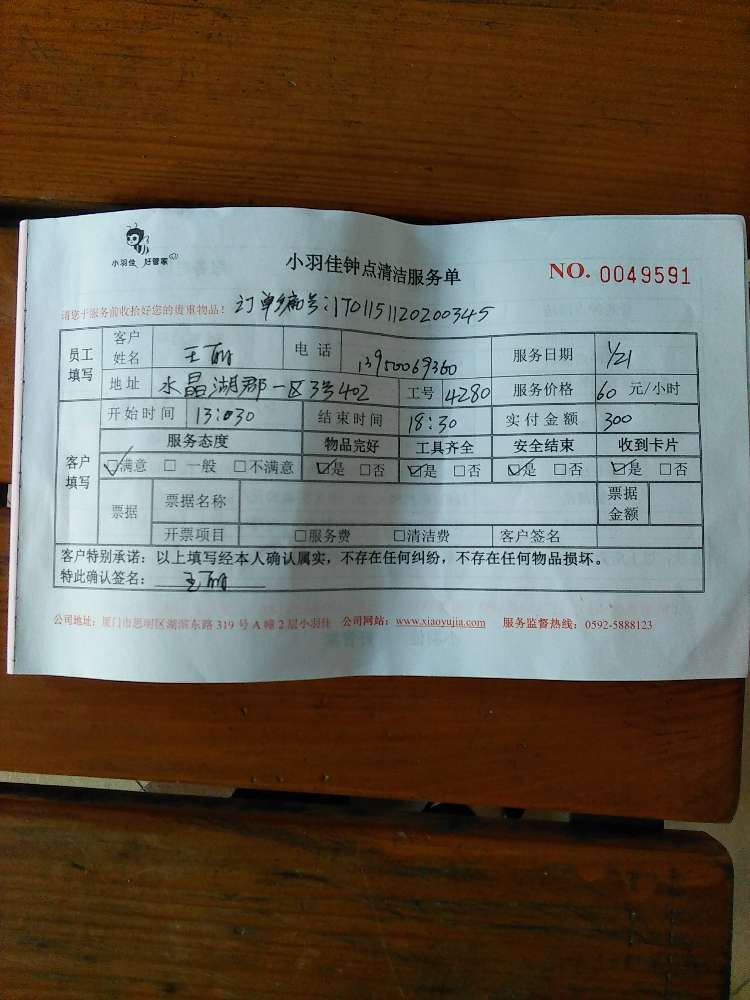 小羽佳 好管家
小羽佳钟点清洁服务单
NO. 0049591
请您于服务前收拾好您的贵重物品! 订单编号:170115112020034​5
员工填写 客户姓名 王丽 电话 13950069360 服务日期 1/21
地址 水晶湖郡一区3号402 工号 4280 服务价格 60 元/小时
客户填写 开始时间 13:30 结束时间 18:30 实付金额 300
服务态度 物品完好 工具齐全 安全结束 收到卡片
☑满意 □一般 □不满意 ☑是 □否 ☑是 □否 ☑是 □否 ☑是 □否
票据 票据名称 票据金额
开票项目 □服务费 □清洁费 客户签名
客户特别承诺:以上填写经本人确认属实,不存在任何纠纷,不存在任何物品损坏。
特此确认签名: 王丽
公司地址:厦门市思明区湖滨东路 319 号 A 幢 2 层小羽佳 公司网站:www.xiaoyujia.com 服务监督热线:0592-5888123